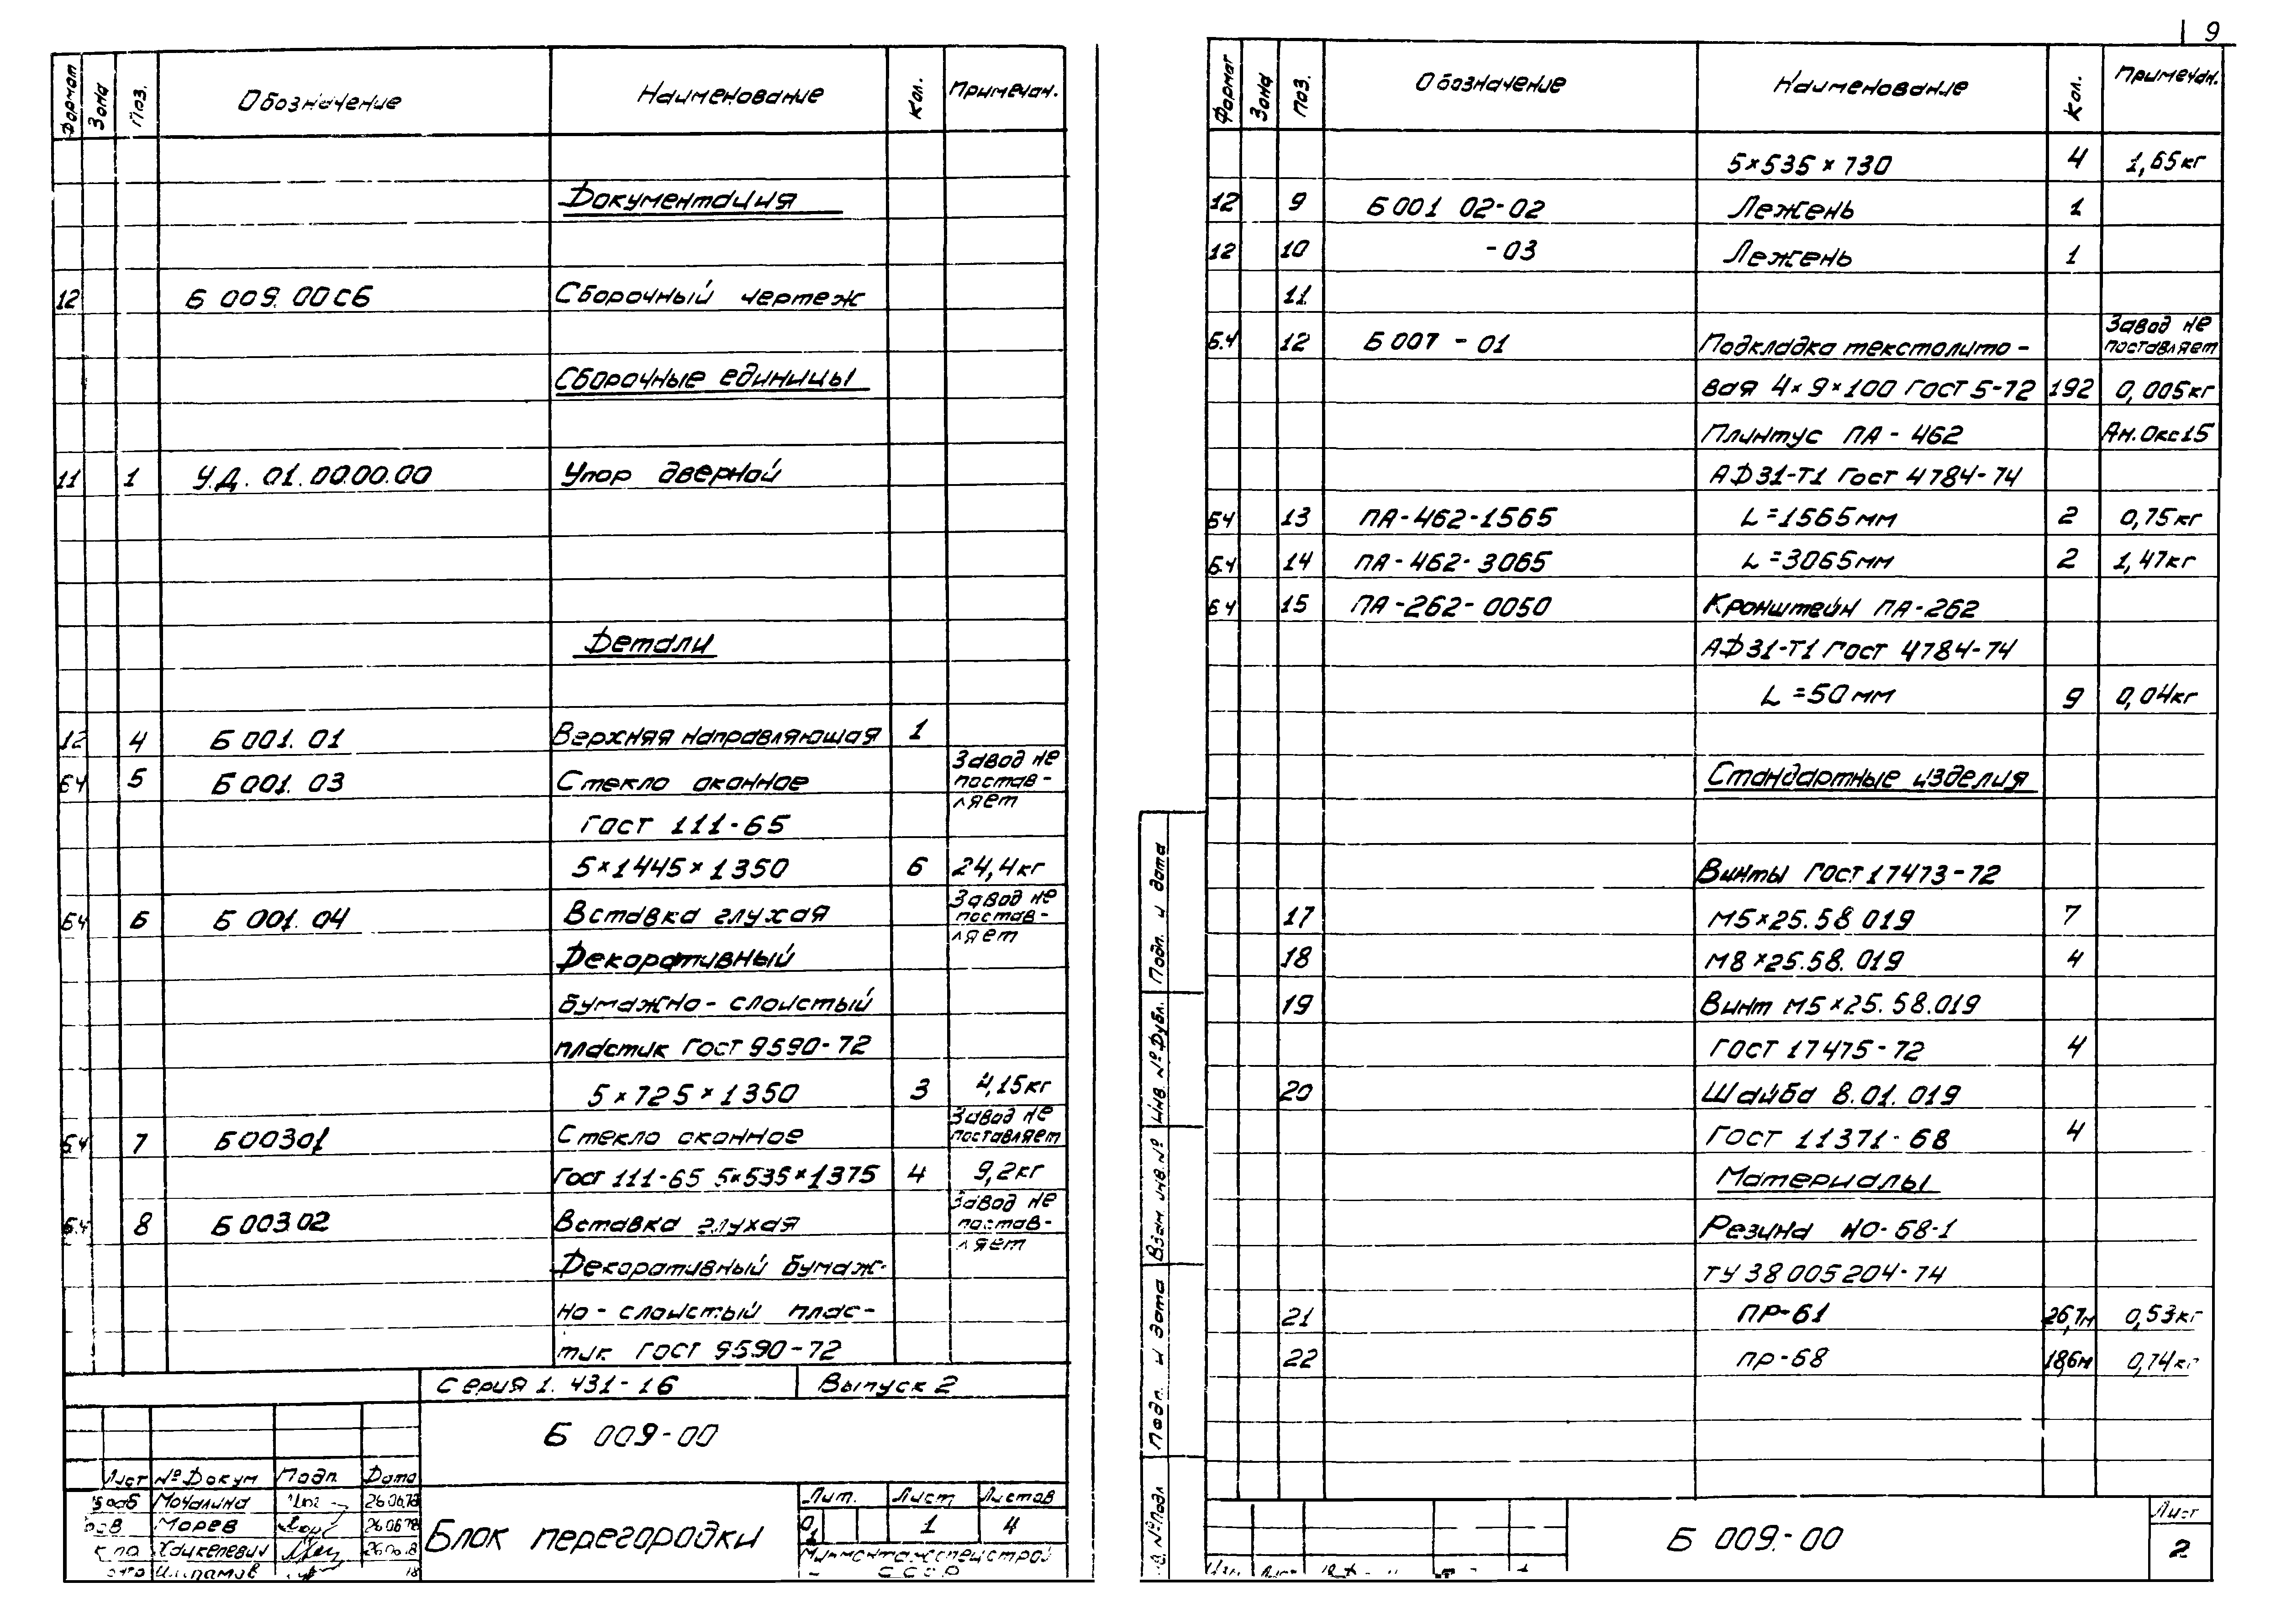 Формат Зона Поз. Обозначение Наименование Кол. Примечан.
Документация
12 Б 009.00СБ Сборочный чертеж
Сборочные единицы
11 1 У.Д. 01.00.00.00 Упор дверной
Детали
12 4 Б 001.01 Верхняя направляющая 1
Б4 5 Б 001.03 Стекло оконное Завод не
постав-
ляет
ГОСТ 111-65
5×1445×1350 6 24,4кг
Б4 6 Б 001.04 Вставка глухая Завод не
постав-
ляет
Декоративный
бумажно-слоистый
пластик ГОСТ 9590-72
5×725×1350 3 4,15кг
Б4 7 Б00301 Стекло оконное Завод не
поставляет
Гост 111-65 5×535×1375 4 9,2кг
Б4 8 Б00302 Вставка глухая Завод не
постав-
ляет
Декоративный бумаж-
но-слоистый плас-
тик ГОСТ 9590-72
Серия 1.431-16 Выпуск 2
Б 009-00
Лист № Докум Подп. Дата
Мочалина 26.06.78
Морев 26.06.78
Блок перегородки
Лит. Лист Листов
1 4
Минмонтажспецстрой
СССР
9
Формат Зона Поз. Обозначение Наименование Кол. Примечан.
5×535×730 4 1,65кг
12 9 Б001 02-02 Лежень 1
12 10 -03 Лежень 1
11
Б.4 12 Б007-01 Подкладка текстолито- Завод не
поставляет
вая 4×9×100 ГОСТ 5-72 192 0,005кг
Плинтус ПА-462 Ан.Окс15
АД31-Т1 Гост 4784-74
Б4 13 ПА-462-1565 L=1565мм 2 0,75кг
Б4 14 ПА-462-3065 L=3065мм 2 1,47кг
Б4 15 ПА-262-0050 Кронштейн ПА-262
АД31-Т1 Гост 4784-74
L=50мм 9 0,04кг
Стандартные изделия
Винты ГОСТ 17473-72
17 М5×25.58.019 7
18 М8×25.58.019 4
19 Винт М5×25.58.019
ГОСТ 17475-72 4
20 Шайба 8.01.019
ГОСТ 11371-68 4
Материалы
Резина НО-68-1
ТУ 38 005204-74
21 ПР-61 26,7м 0,53кг
22 ПР-68 18,6м 0,74кг
Подп. и дата
Инв. № Дубл.
Взам. инв. №
Подп. и дата
№ Подл
Б 009.-00
Лист
2